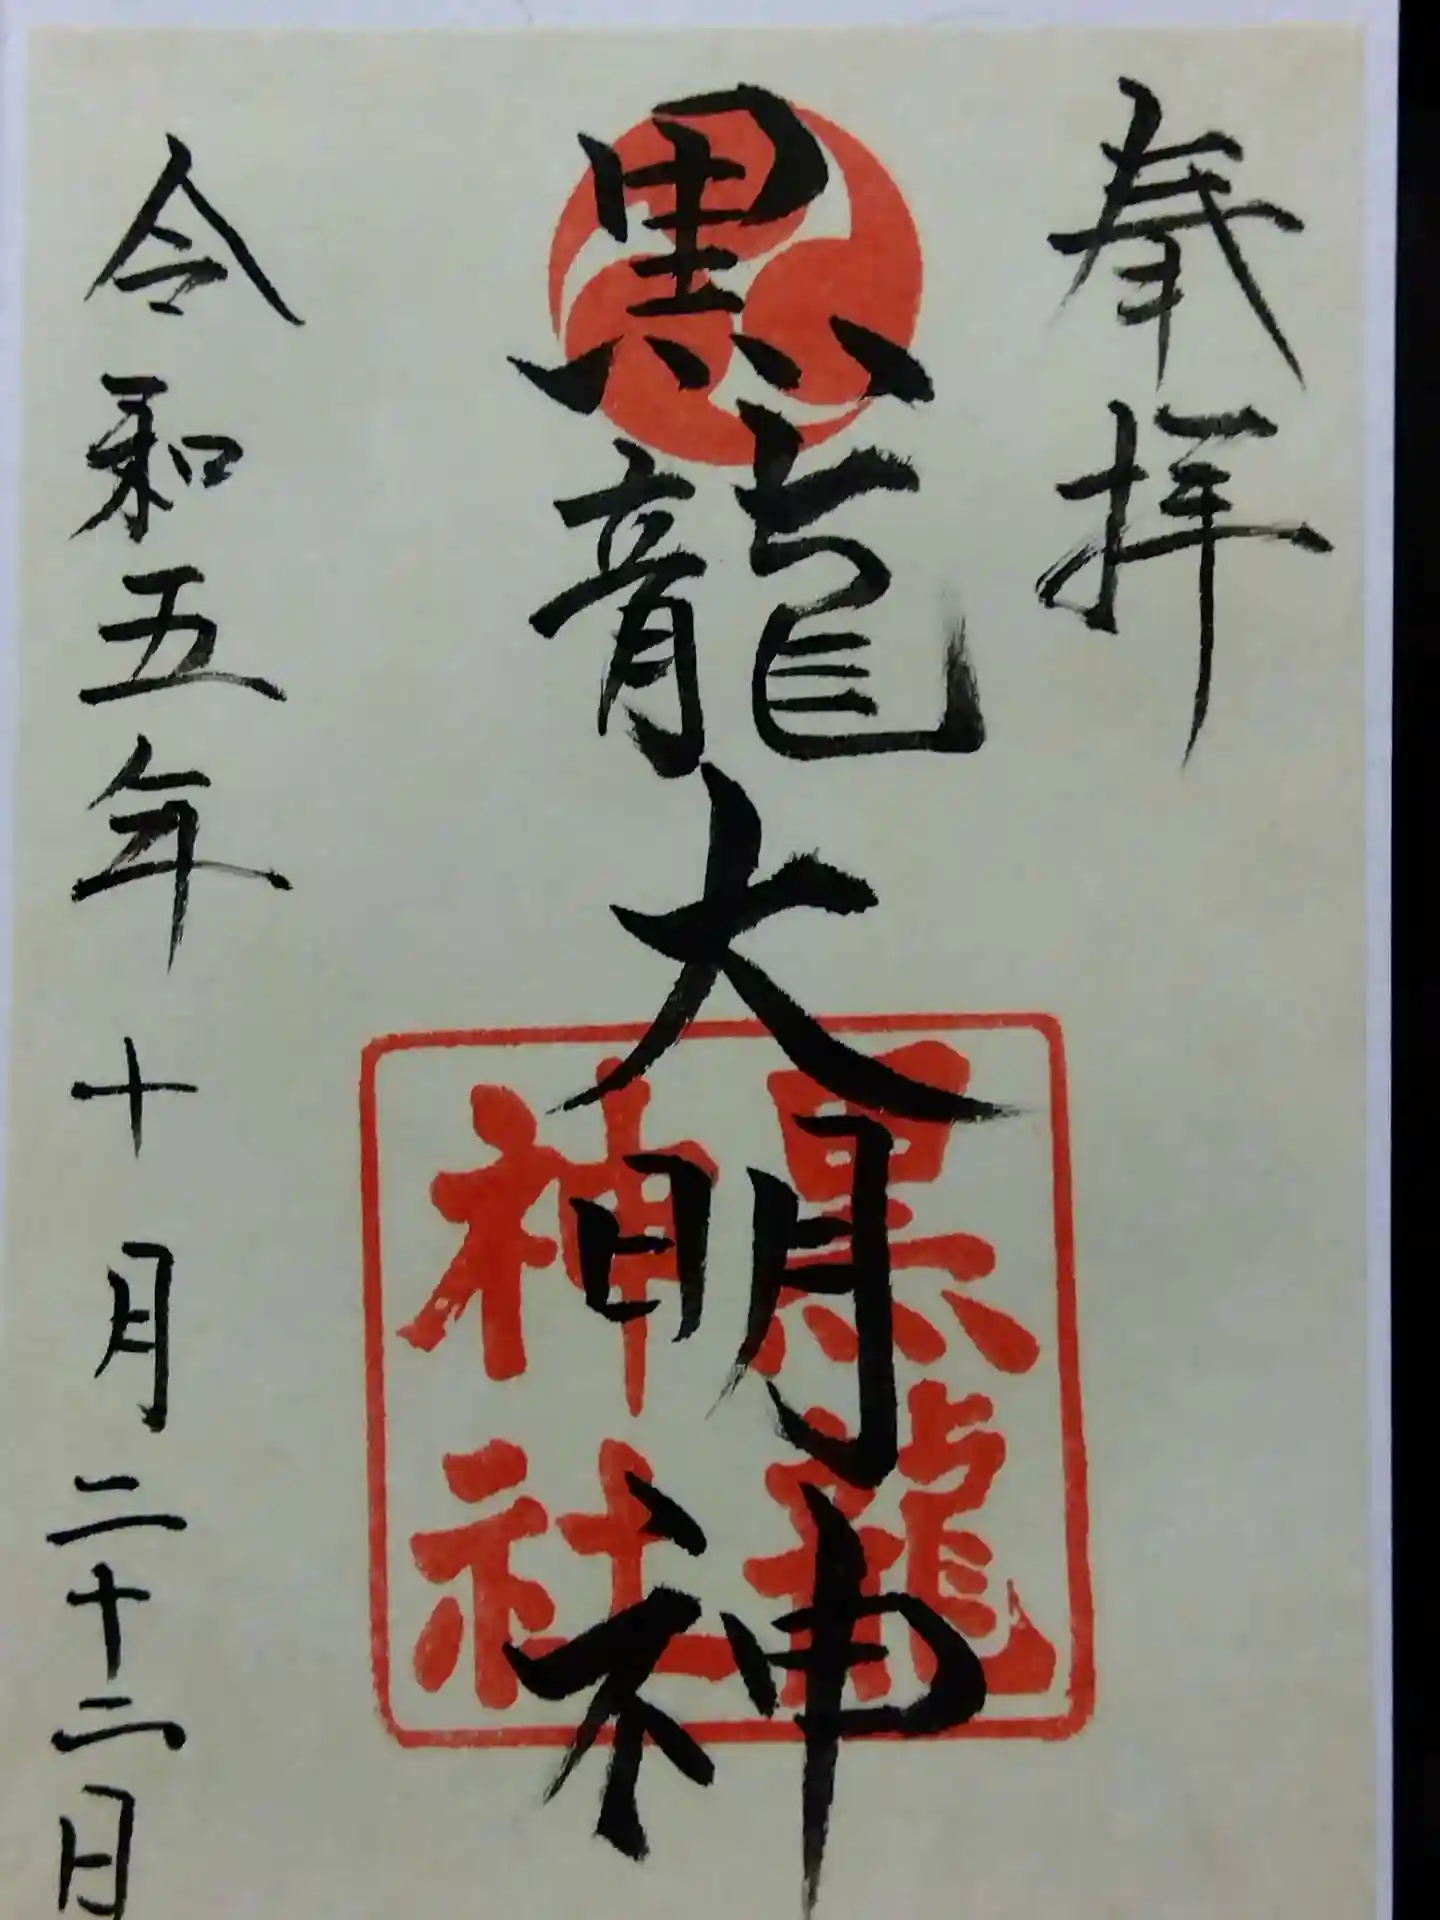 奉拝
黒龍大明神
黒龍
神社
令和五年十月二十二日